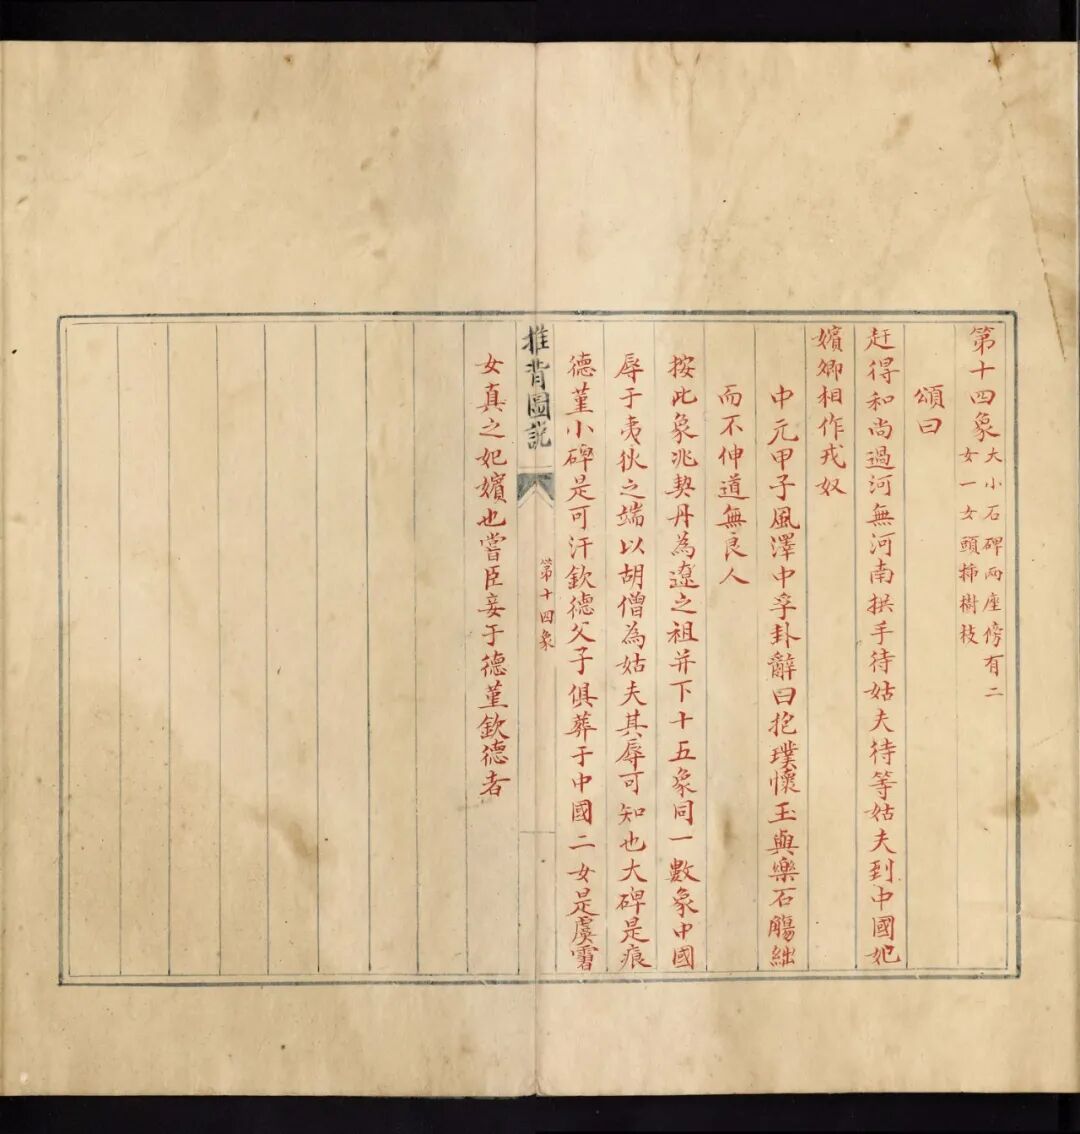 第十四象
大小石碑兩座傍有二
女一女頭揷樹枝
頌曰
赶得和尚過河無河南拱手待姑夫待等姑夫到中國妃
嬪卿相作戎奴
中元甲子風澤中孚卦辭曰抱璞懷玉與樂石觴絀
而不伸道無良人
按此象兆契丹為遼之祖并下十五象同一數象中國
辱于夷狄之端以胡僧為姑夫其辱可知也大碑是痕
德堇小碑是可汗欽德父子俱葬于中國二女是虞霫
推背圖說
第十四象
女真之妃嬪也嘗臣妾于德堇欽德者